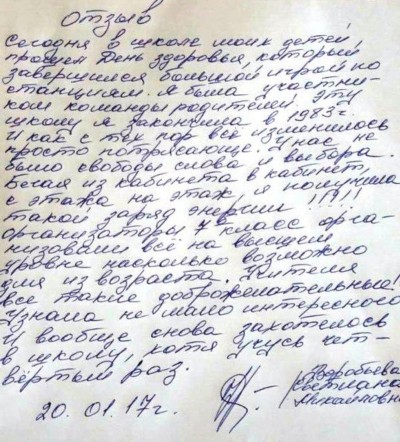 Отзыв
Сегодня в школе моих детей
прошел День здоровья, который
завершился большой игрой по
станциям. Я была участни-
ком команды родителей. Эту
школу я закончила в 1983 г.
И как с тех пор всё изменилось
просто потрясающе. У нас не
было свободы слова и выбора.
Бегая из кабинета в кабинет,
с этажа на этаж я получила
такой заряд энергии !!!!!
организаторы 7 класс орга-
низовали всё на высшем
уровне насколько возможно
для их возраста. Учителя
все такие доброжелательные!
Узнала не мало интересного
И вообще снова захотелось
в школу, хотя учусь чет-
вёртый раз.
Воробьева
Светлана
Михайловна
20. 01. 17 г.